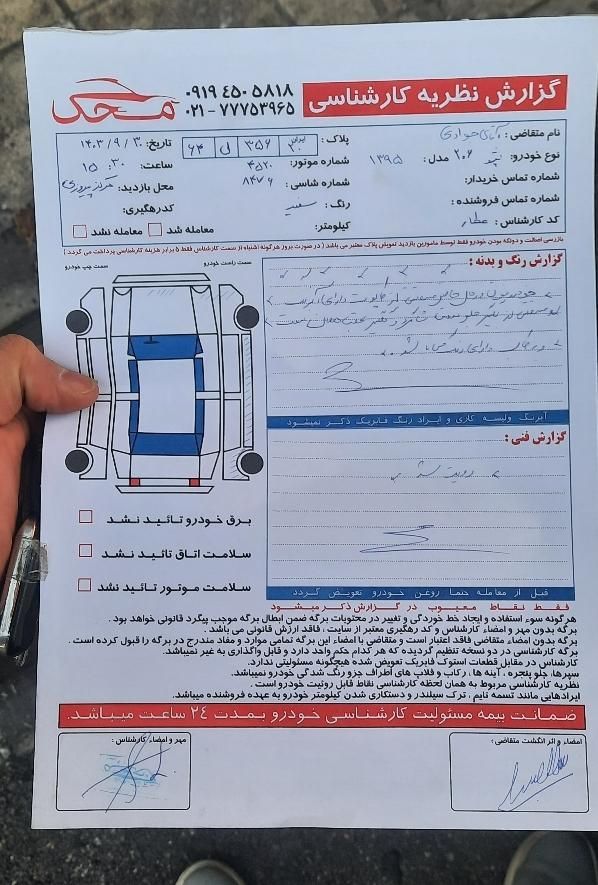 محک
۰۹۱۹ ۴۵۰ ۵۸۱۸
۰۲۱ - ۷۷۷۵۳۹۶۵
گزارش نظریه کارشناسی
نام متقاضی : آقای جوادی
پلاک : ایران ۳۰ ۳۵۶ ل ۶۴
تاریخ: ۱۴۰۳/۹/۳۰
نوع خودرو: ۲۰۶ مدل : ۱۳۹۵
شماره موتور: ۴۵۲۰
ساعت: ۱۵:۳۰
شماره تماس خریدار:
شماره شاسی : ۸۴۷۶
محل بازدید: مرکز پیروزی
شماره تماس فروشنده :
رنگ : سفید
کدرهگیری:
کد کارشناس : عطار
کیلومتر:
معامله شد
معامله نشد
بازرسی اصالت و دوتکه بودن خودرو فقط توسط مامورین بازدید تعویض پلاک معتبر می باشد ( در صورت بروز هرگونه اشتباه از سمت کارشناس فقط ۵ برابر هزینه کارشناسی پرداخت می گردد )
سمت راست خودرو
سمت چپ خودرو
گزارش رنگ و بدنه :
آبرنگ ولیسه گاری و ایراد رنگ فابریک ذکر نمیشود
گزارش فنی :
رویت شد
برق خودرو تائید نشد
سلامت اتاق تائید نشد
سلامت موتور تائید نشد
قبل از معامله حتما روغن خودرو تعویض گردد
فقط نقاط معیوب در گزارش ذکر میشود
هرگونه سوء استفاده و ایجاد خط خوردگی و تغییر در محتویات برگه ضمن ابطال برگه موجب پیگرد قانونی خواهد بود .
برگه بدون مهر و امضاء کارشناس و کد رهگیری معتبر از سایت ، فاقد ارزش قانونی می باشد .
برگه بدون امضاء متقاضی فاقد اعتبار است و متقاضی با امضاء این برگه تمامی موارد و مفاد مندرج در برگه را قبول کرده است .
برگه کارشناسی در دو نسخه تنظیم گردیده که هر کدام حکم واحد دارد و قابل واگذاری به غیر نمیباشد.
کارشناس در مقابل قطعات استوک فابریک تعویض شده هیچگونه مسئولیتی ندارد.
سپرها، جلو پنجره ، آینه ها ، رکاب و قلاب های اطراف جزو رنگ شدگی خودرو نمیباشد.
نظریه کارشناسی مربوط به همان لحظه کارشناسی نقاط قابل روئیت خودرو است .
ایرادهایی مانند تسمه تایم ، ترک سیلندر و دستکاری شدن کیلومتر خودرو به عهده فروشنده میباشد.
ضمانت بیمه مسئولیت کارشناسی خودرو بمدت ۲۴ ساعت میباشد.
امضاء و اثر انگشت متقاضی :
مهر و امضاء کارشناس :